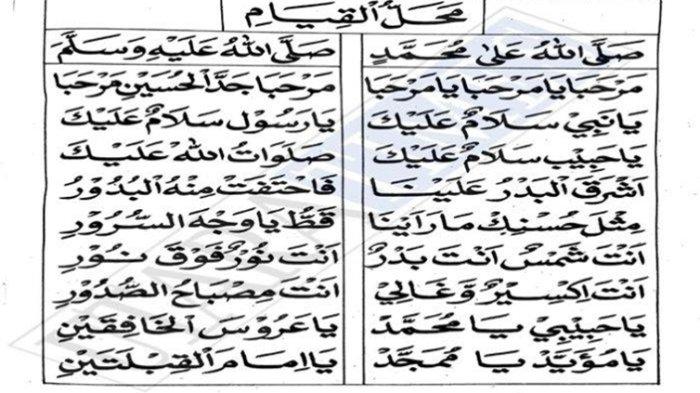 مَحَلُّ الْقِيَامِ
صَلَّى اللهُ عَلَى مُحَمَّدٍ صَلَّى اللهُ عَلَيْهِ وَسَلَّمَ
مَرْحَبًا يَا مَرْحَبًا يَا مَرْحَبَا مَرْحَبًا جَدَّ الْحُسَيْنِ مَرْحَبَا
يَا نَبِيْ سَلَامٌ عَلَيْكَ يَا رَسُوْل سَلَامٌ عَلَيْكَ
يَا حَبِيْب سَلَامٌ عَلَيْكَ صَلَوَاتُ اللهْ عَلَيْكَ
اَشْرَقَ الْبَدْرُ عَلَيْنَا فَاخْتَفَتْ مِنْهُ الْبُدُوْرُ
مِثْلَ حُسْنِكْ مَا رَاَيْنَا قَطُّ يَا وَجْهَ السُّرُوْرِ
اَنْتَ شَمْسٌ اَنْتَ بَدْرٌ اَنْتَ نُوْرٌ فَوْقَ نُوْرٍ
اَنْتَ اِكْسِيْرٌ وَّغَالِيْ اَنْتَ مِصْبَاحُ الصُّدُوْرِ
يَا حَبِيْبِيْ يَا مُحَمَّدْ يَا عَرُوْسَ الْخَافِقَيْنِ
يَا مُؤَيَّدْ يَا مُمَجَّدْ يَا اِمَامَ الْقِبْلَتَيْنِ